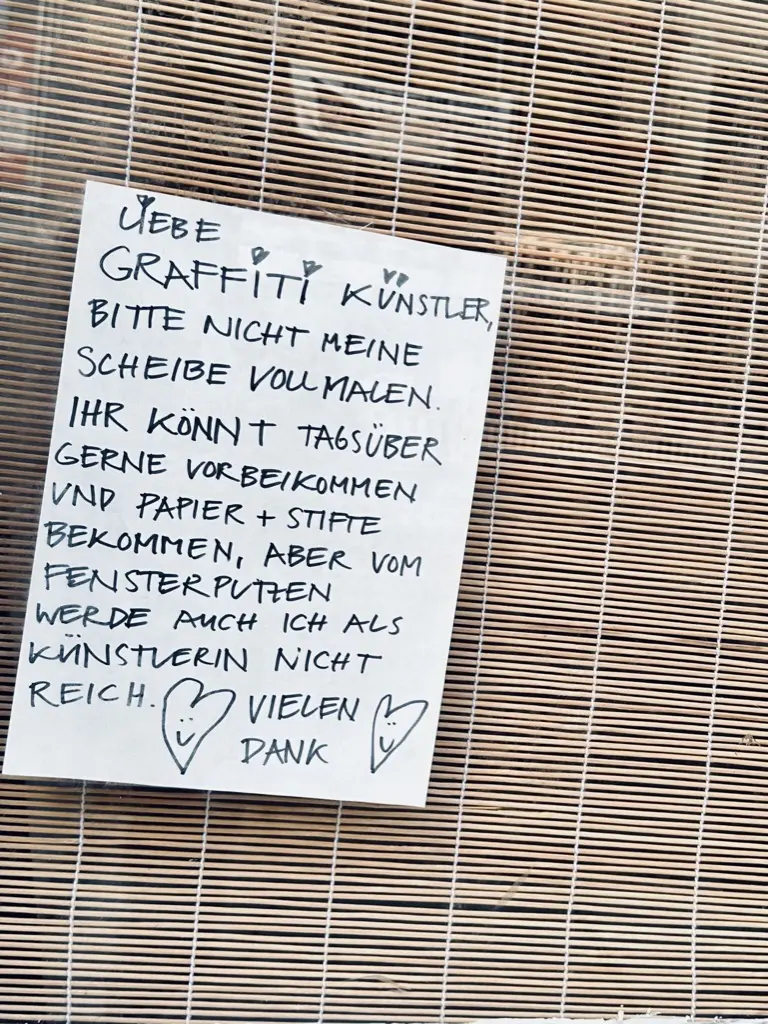 LIEBE
GRAFFITI KÜNSTLER,
BITTE NICHT MEINE
SCHEIBE VOLLMALEN.
IHR KÖNNT TAGSÜBER
GERNE VORBEIKOMMEN
UND PAPIER + STIFTE
BEKOMMEN, ABER VOM
FENSTERPUTZEN
WERDE AUCH ICH ALS
KÜNSTLERIN NICHT
REICH. VIELEN
DANK